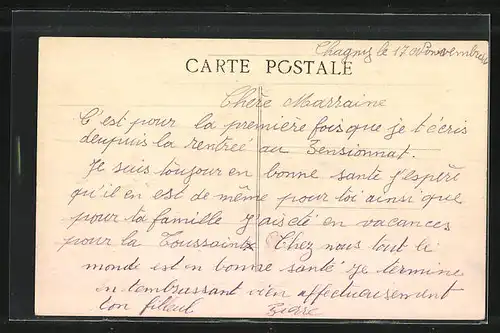 Chagny le 17 Novembre
CARTE POSTALE
Chère Marraine
C'est pour la première fois que je t'écris
deupuis la rentrée au Pensionnat.
Je suis toujour en bonne santé j'espère
qu'il en est de même pour toi ainsi que
pour ta famille J'ais été en vacances
pour la Toussaint Chez nous tout le
monde est en bonne santé Je termine
en t'embrassant bien affectueusement
ton filleul Pierre